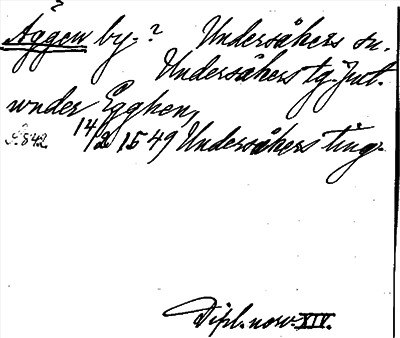 Äggen by? Undersåkers sn.
Undersåkers tg. Jmt.
wnder Egghen,
S. 842 14/2 1549 Undersåkers ting.
Dipl. norv. XIV.